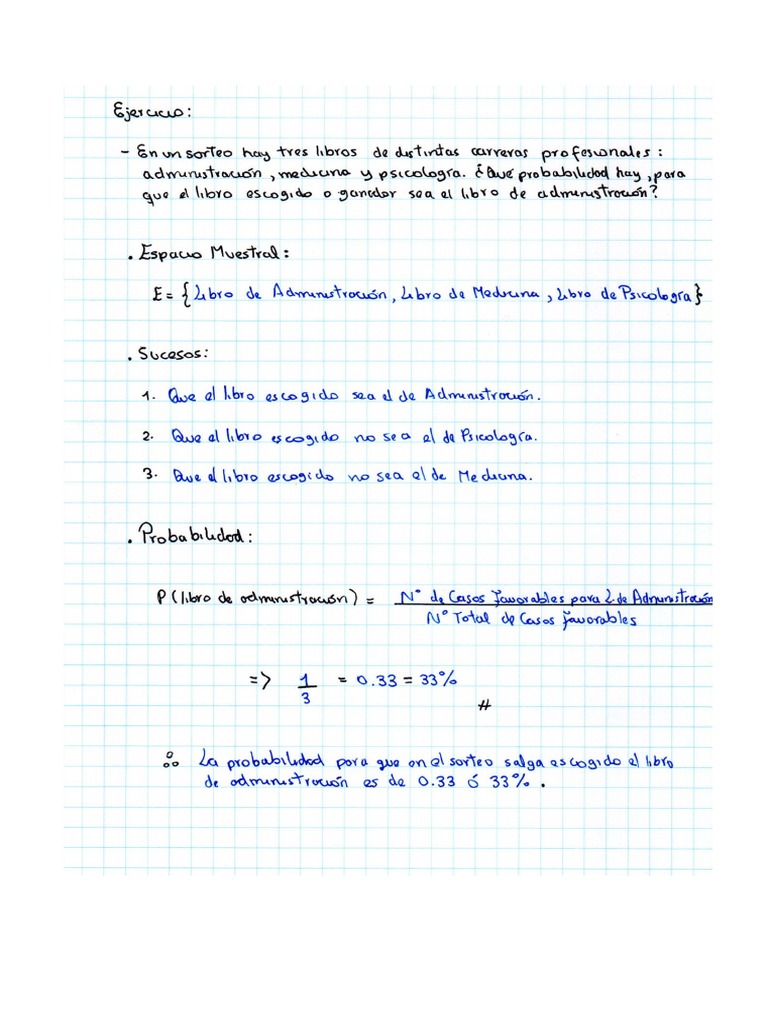 Ejercicio:
- En un sorteo hay tres libros de distintas carreras profesionales:
administración, medicina y psicología. ¿Qué probabilidad hay, para
que el libro escogido o ganador sea el libro de administración?
. Espacio Muestral:
E = {Libro de Administración, Libro de Medicina, Libro de Psicología}
. Sucesos:
1. Que el libro escogido sea el de Administración.
2. Que el libro escogido no sea el de Psicología.
3. Que el libro escogido no sea el de Medicina.
. Probabilidad:
P (libro de administración) = N° de Casos favorables para L. de Administración
N° Total de Casos favorables
=> 1/3 = 0.33 = 33%
#
∴ La probabilidad para que en el sorteo salga escogido el libro
de administración es de 0.33 ó 33%.